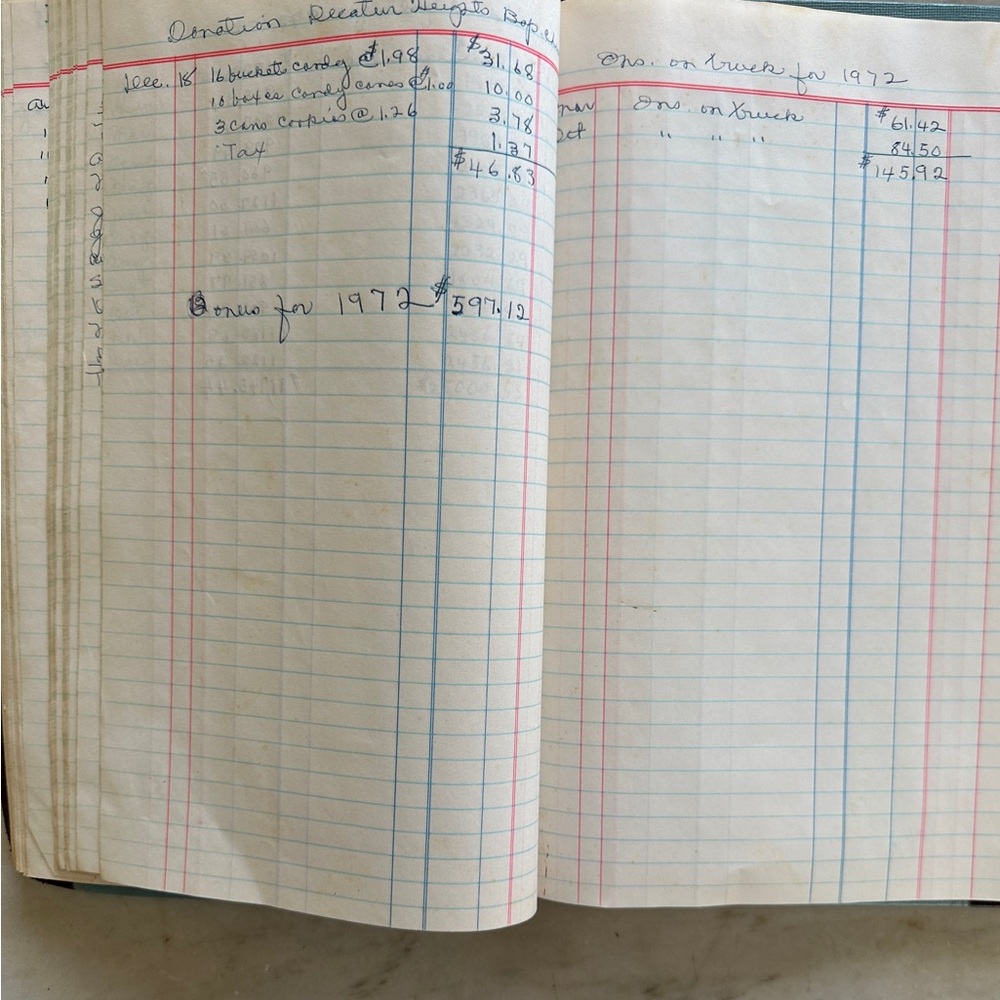 Donation Decatur Heights Bap. ch
Dec. 18 16 buckets candy @ $1.98 $31.68
10 boxes candy canes @ $1.00 10.00
3 cans cookies @ 1.26 3.78
Tax 1.37
$46.83
Bonus for 1972 $597.12
Ins. on truck for 1972
mar Ins. on truck $61.42
" " " 84.50
$145.92